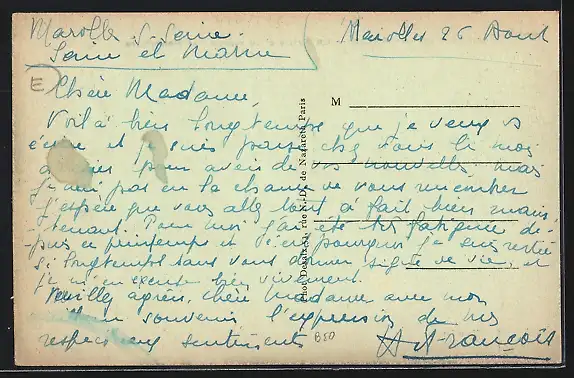 Marolles s-Seine
Seine et Marne
Marolles 26 Aout
Chère Madame,
M
Voilà bien longtemps que je veux
écrire et je suis passée chez vous le mois
pour avoir de vos nouvelles, mais
je n'ai pas eu la chance de vous rencontrer
J'espère que vous allez tout à fait bien main-
tenant. Pour moi j'ai été très fatiguée de-
puis ce printemps et pourquoi je suis restée
si longtemps sans vous donner signe de vie, et
je m'en excuse bien vivement.
Veuillez agréer, chère Madame avec mon
souvenir l'expression de mes
respectueux sentiments
A. François
B50
Phot Desaix, rue N.-D. de Nazareth Paris